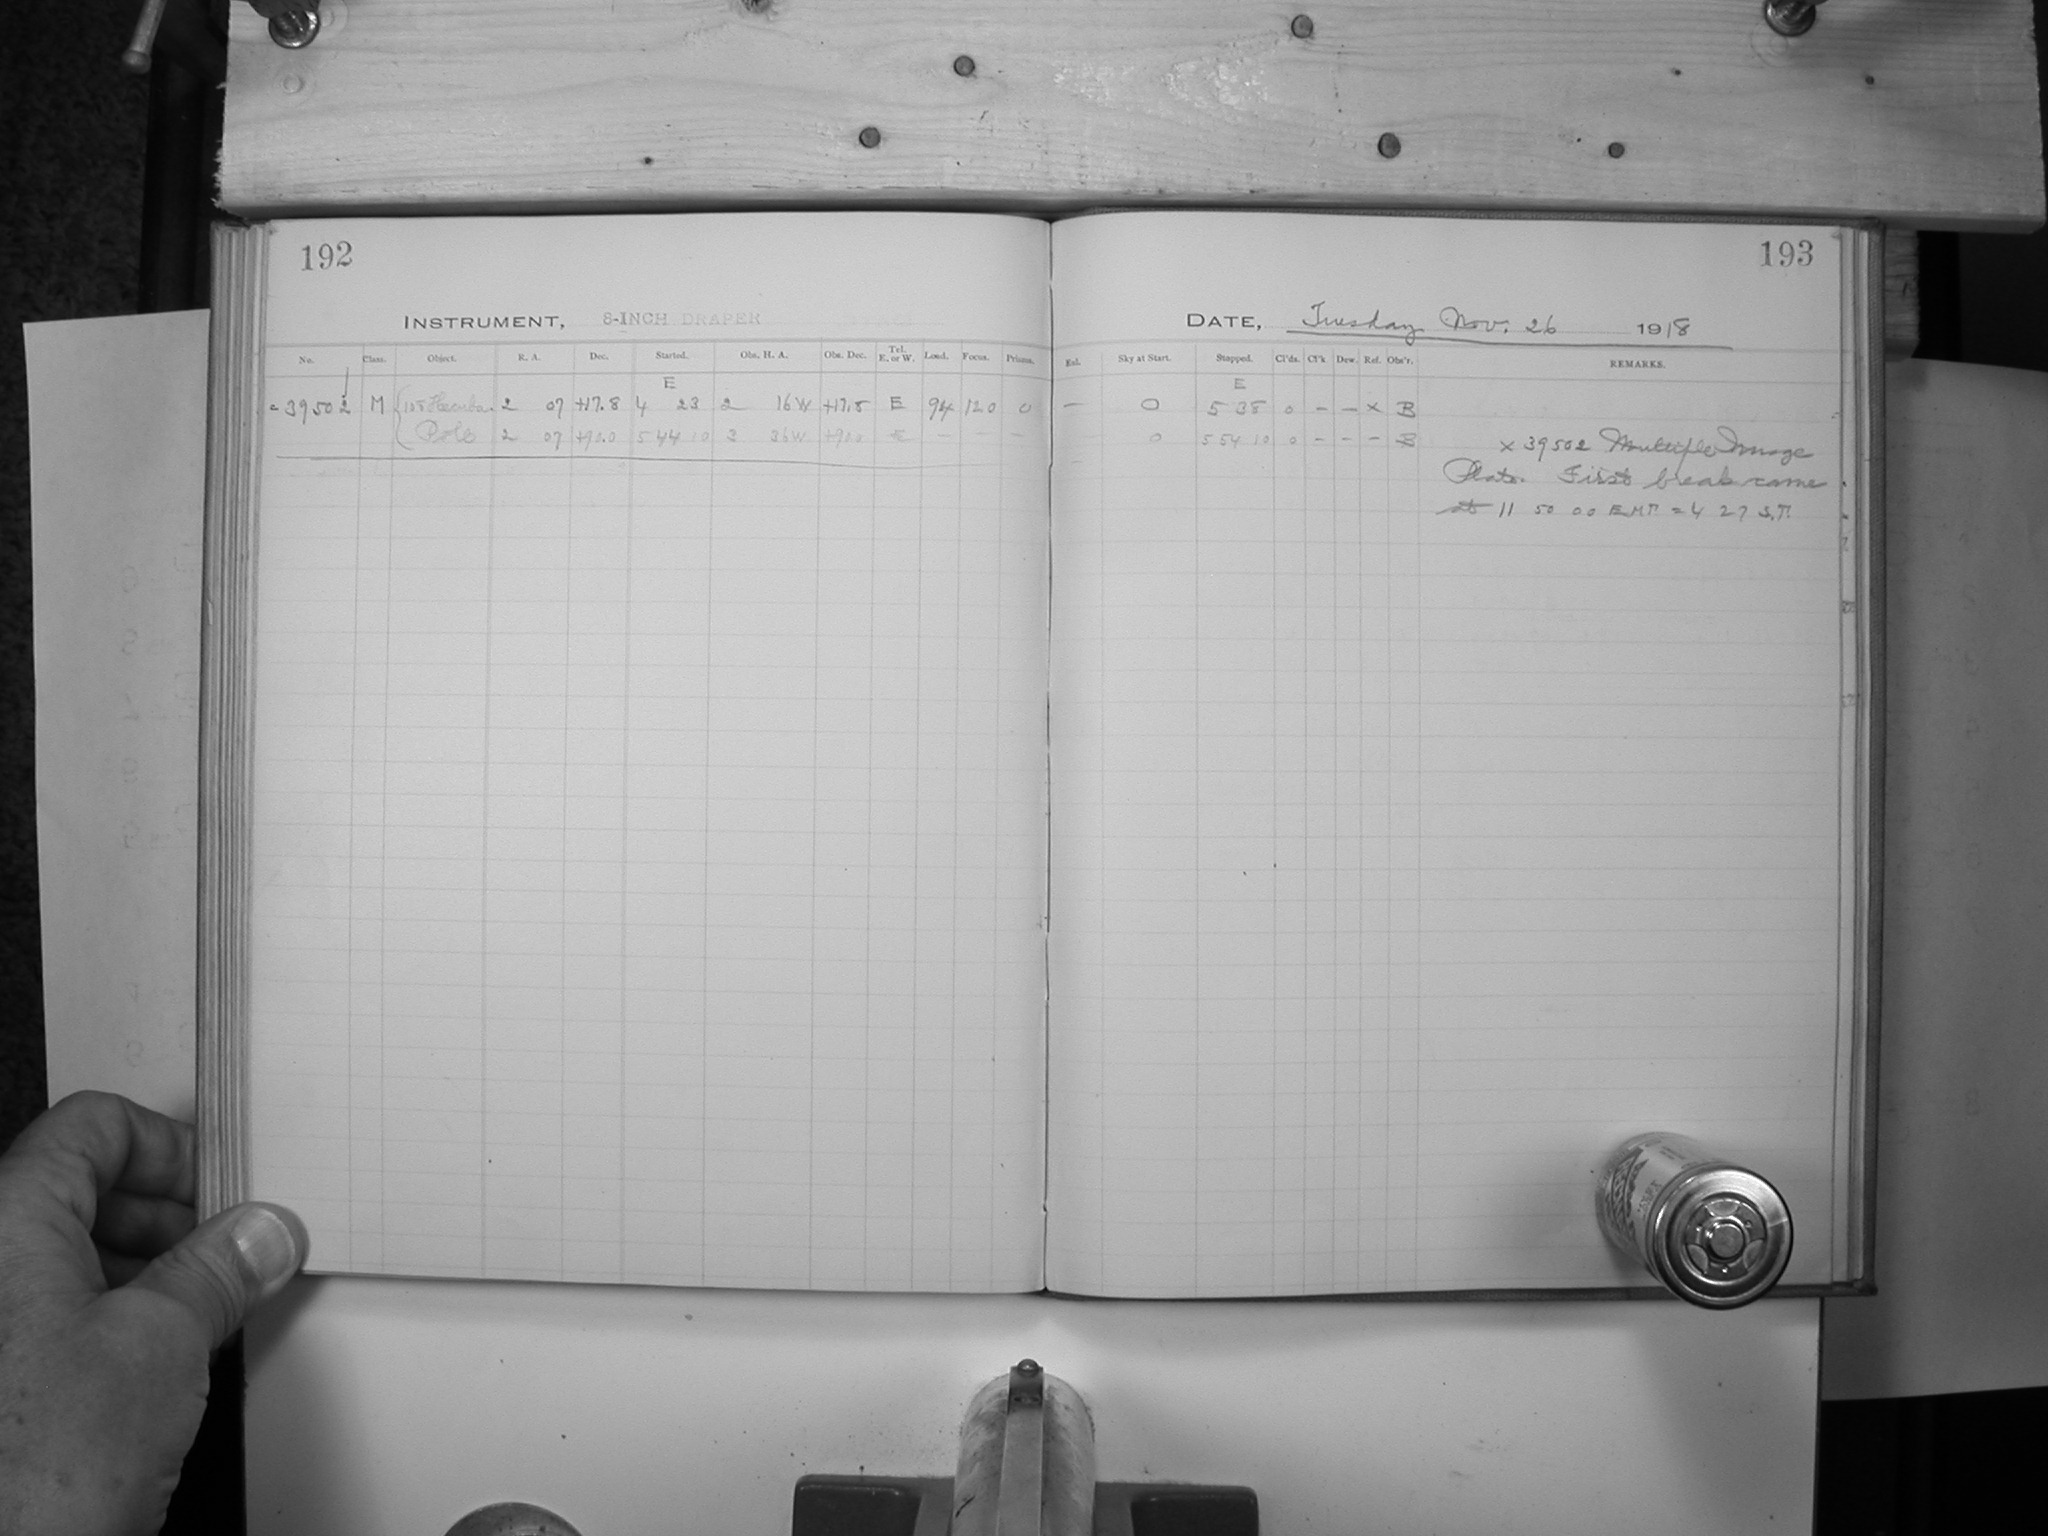 192
INSTRUMENT, 8-INCH DRAPER
No. Class. Object. R. A. Dec. Started. Obs. H. A. Obs. Dec. Tel. E. or W. Load. Focus. Prisms.
E
= 39502 M 108 Hecuba 2 07 +17.8 4 23 2 16W +17.8 E 94 12.0 0
Pole 2 07 +90.0 5 44 10 3 36W +90.0 E — — —
193
DATE, Tuesday Nov. 26 1918
Exl. Sky at Start. Stopped. Cl'ds. Cl'k Dew. Ref. Obs'r. REMARKS.
E
— 0 5 38 0 – – x B
0 5 54 10 0 – – – B
x 39502 Multiple Image
Plate. First break came
at 11 50 00 E.M.T. = 4 27 S.T.